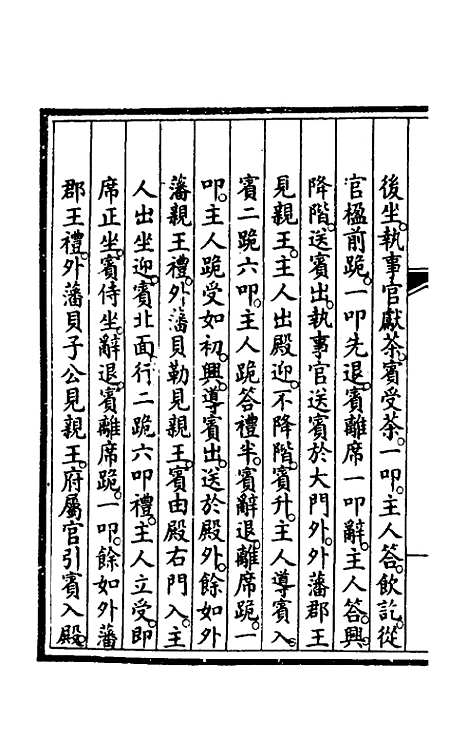 後坐。執事官獻茶。賓受茶。一叩。主人答。飲訖。從
官楹前跪。一叩先退。賓離席一叩辭。主人答。興。
降階。送賓出。執事官送賓於大門外。外藩郡王
見親王。主人出殿迎。不降階。賓升。主人導賓入。
賓二跪六叩。主人跪答禮半。賓辭退。離席跪。一
叩。主人跪受如初。興。導賓出。送於殿外。餘如外
藩親王禮。外藩貝勒見親王。賓由殿右門入。主
人出坐迎。賓北面行二跪六叩禮。主人立受。即
席正坐。賓侍坐。辭退。賓離席跪。一叩。餘如外藩
郡王禮。外藩貝子公見親王。府屬官引賓入殿。